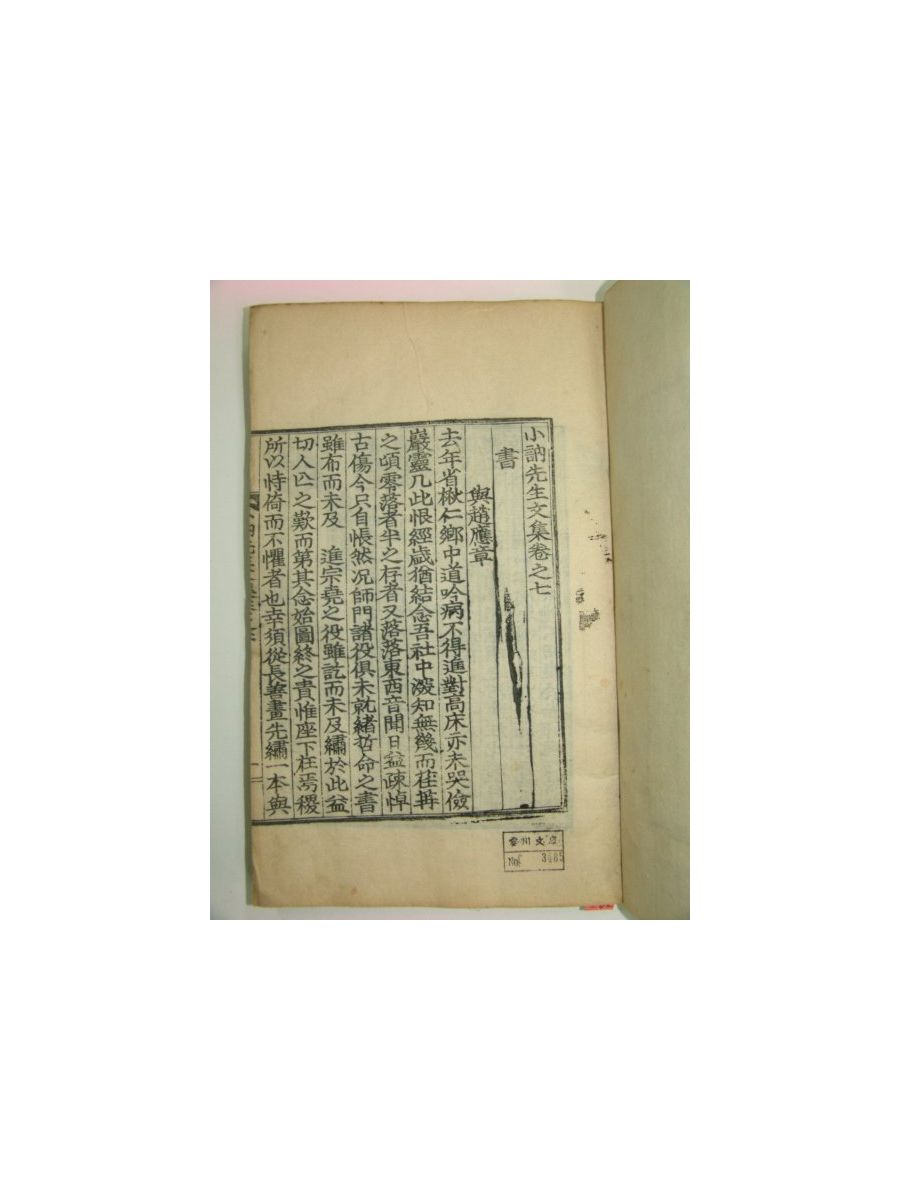 小訥先生文集卷之七
書
與趙應章
去年省楸仁鄉中道吟病不得進對高床亦未哭儉
巖靈几此恨經歲猶結念吾社中潑知無幾而荏苒
之頃零落者半之存者又落落東西音聞日益疎悼
古傷今只自悵然况師門諸役俱未就緖哲命之書
雖布而未及 進宗堯之役雖訖而未及繡於此益
切人亾之歎而第其念始圖終之責惟座下在焉稷
所以恃倚而不懼者也幸須從長善畫先繡一本與
文庫
No. 3485